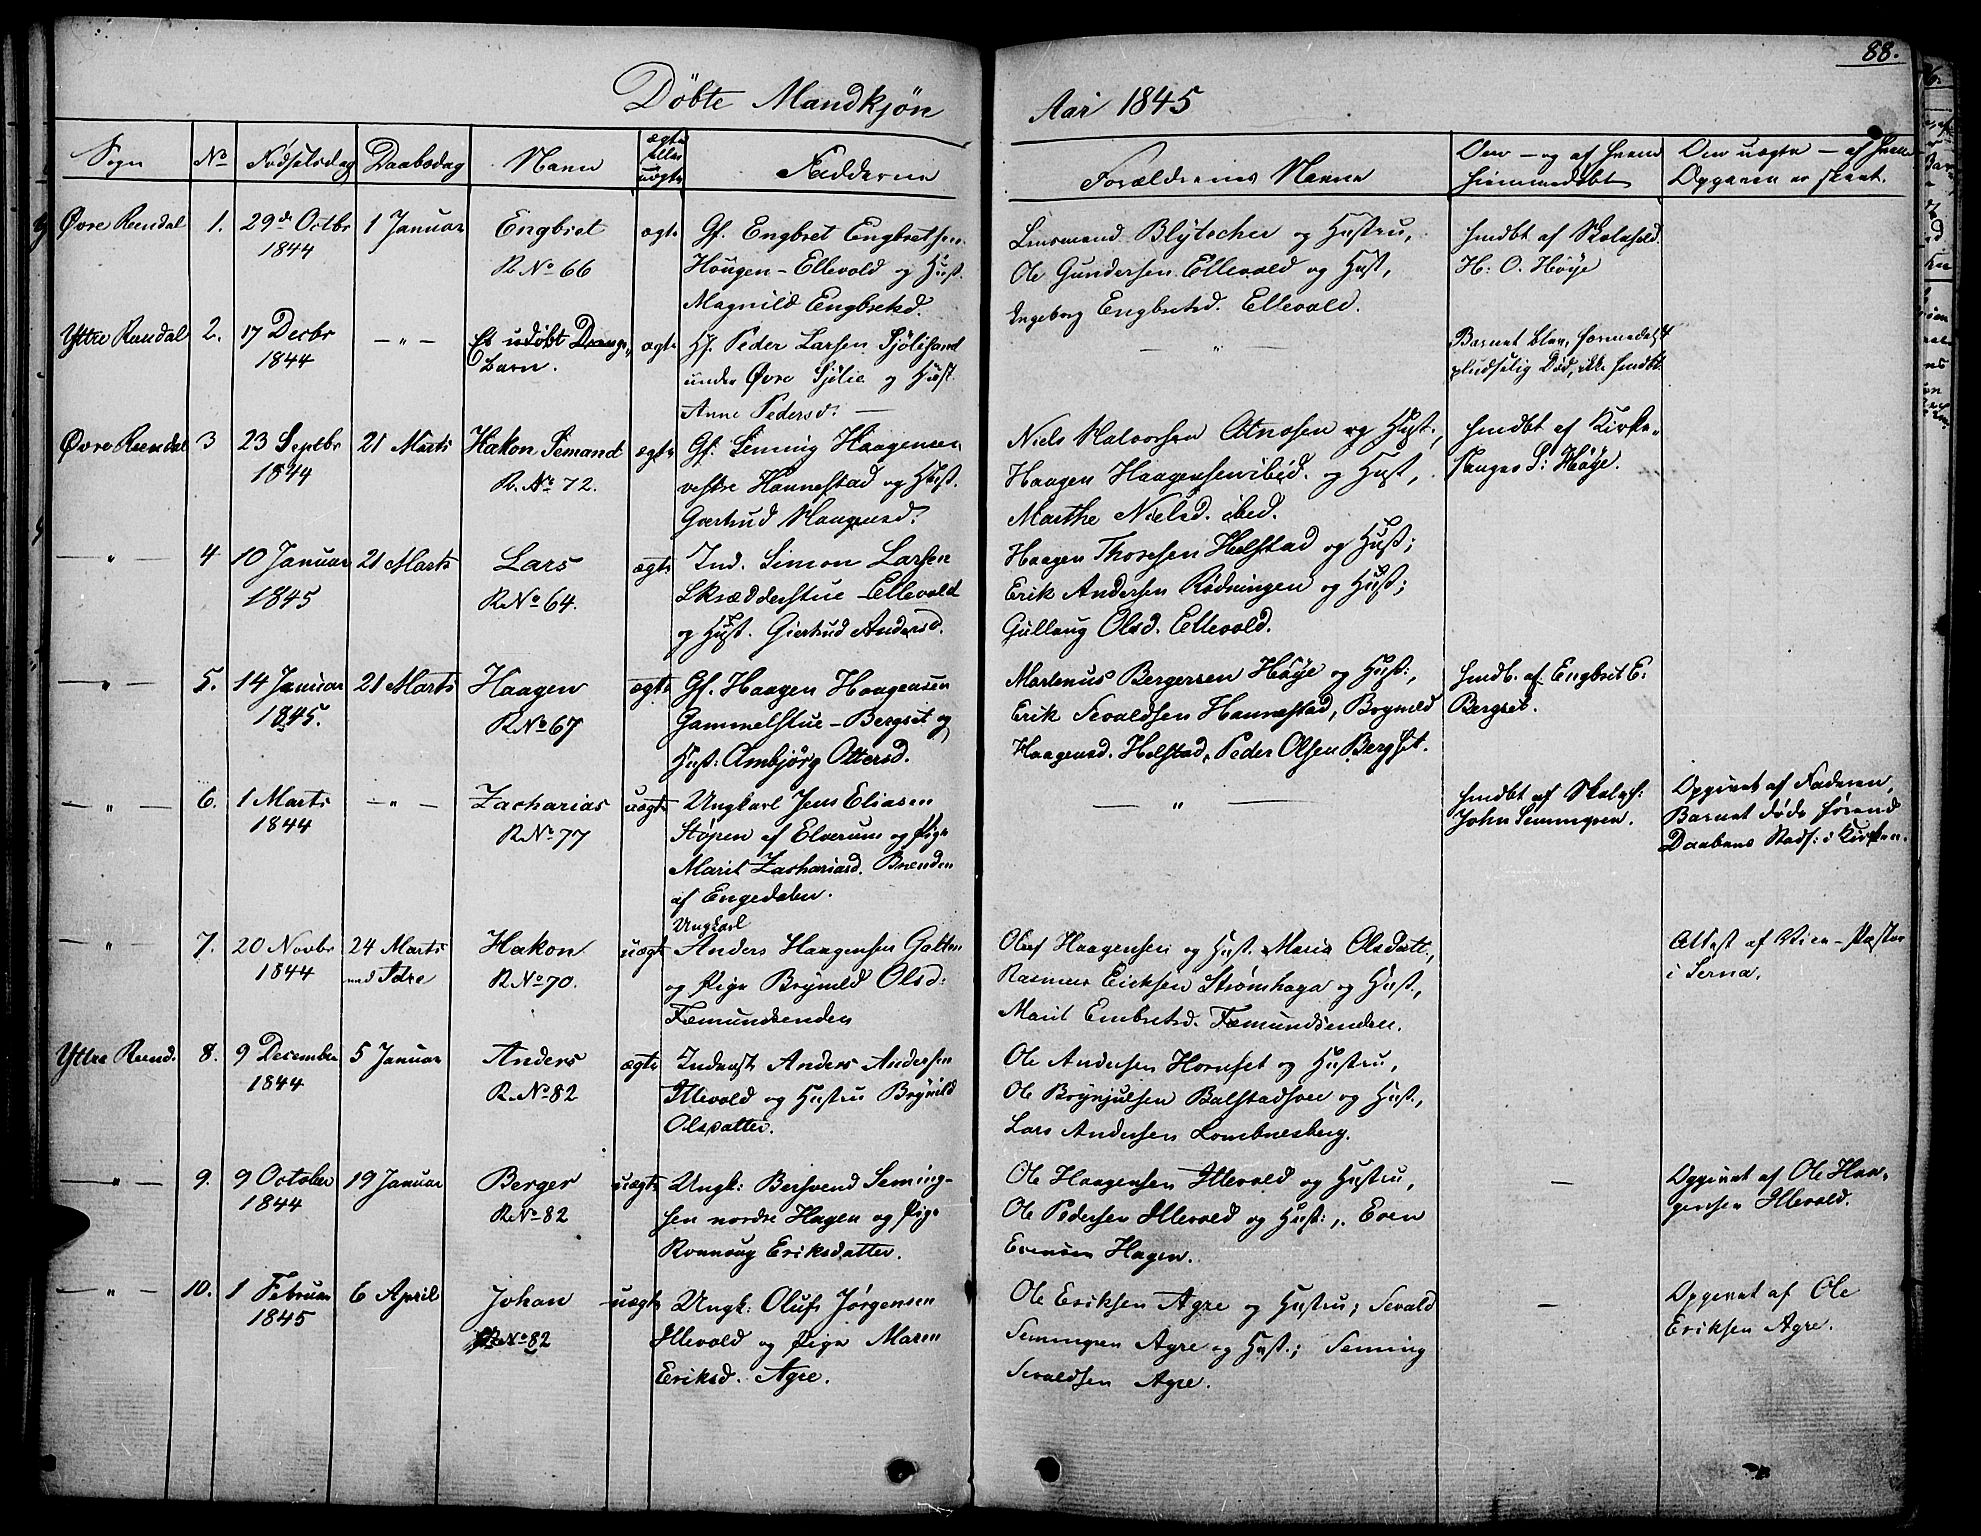 88.
Döbte Mandkjön Aar 1845
Sogn No Fødselsdag Daabsdag Navn ægte eller uægte Fadderne Forældrenes Navne Om – og af hvem hjemmedøbt Om uægte – af hvem Opgaven er skeet.
Øvre Rendal 1. 29de Octbr 1844 1 Januar Engbret R No 66 ægte
Gf. Engbret Engbretsen
Hougen – Ellevold og Hust.
Magnild Engbretsd.
Lensmand Blytscher og Hustru,
Ole Gundersen Ellevold og Hust,
Ingeborg Engbretsd. Ellevold.
hmdbt af Skolehold.
H: O. Høye
Yttre Rendal 2. 17 Decbr 1844 – " – Et udöbt Drenge, Barn. ægte
Hf. Peder Larsen Sjölisand
under Øvre Sjølie og Hust.
Anne Pedersd. –
– " –
Barnet blev, formedelst
pludselig Død, ikke hmdbt.
Øvre Rendal 3 23 Septbr 1844 21 Marts Hakon Semand R. No 72. ægte
Gf. Semming Haagensen
vestre Hannestad og Hust.
Gertrud Haagensd.
Niels Halvorsen Atnosen og Hust.,
Haagen Haagensen ibid. og Hust,
Marthe Nielsd. ibid.
hmdbt af Kirke-
sanger S: Høye.
– " – 4 10 Januar 1845 21 Marts Lars R No 64. ægte
Ind. Simon Larsen
Skrædderstue – Ellevold
og Hust. Giertrud Andersd.
Haagen Thoresen Helstad og Hust;
Erik Andersen Rödningen og Hust;
Gullaug Olsd. Ellevold.
– " – 5. 14 Januar 1845. 21 Marts Haagen R No 67 ægte
Gf. Haagen Haagensen
Gammelstue – Bergset og
Hust: Ambjörg Ottersd.
Martenus Bergersen Høye og Hust:,
Erik Sevaldsen Hannestad, Brynild
Haagensd. Helstad, Peder Olsen Bergset.
hmdb. af Engbret E:
Bergset.
– " – 6. 1 Marts 1844 – " – Zacharias R No 77 uægte
Ungkarl Jens Eliasen
Støpen af Elverum og Pige
Marit Zachariasd. Brenden
af Engedalen.
– " –
hmdbt af Skoleh:
John Semmingsen.
Opgivet af Faderen,
Barnet døde førend
Daabens Stadf: i Kirken.
– " – 7. 20 Novbr 1844 24 Marts med Idre Hakon R No 70. uægte
Ungkarl
Anders Haagensen Galten
og Pige Brynild Olsd:
Fæmundsenden
Oluf Haagensen og Hust. Maria Olsdatt.,
Rasmus Ericksen Strømhaga og Hust,
Marit Embretsd. Fæmundsenden.
Attest af Vice-Pastor
i Serna.
Yttre Rend. 8. 9 December 1844 5 Januar Anders R. No 82 ægte
Inderst Anders Andersen
Illevold og Hustru Brynild
Olsdatter.
Ole Andersen Hornset og Hustru,
Ole Brynjulsen Balstadhoer og Hust.,
Lars Andersen Lombnesberg.
– " – 9. 9 October 1844 19 Januar Berger R No 82 uægte
Ungk: Bersvend Seming-
sen nordre Hagen og Pige
Rönnoug Eriksdatter.
Ole Haagensen Illevold og Hustru,
Ole Pedersen Illevold og Hust:, Even
Evensen Hagen.
–
Opgivet af Ole Haa-
gensen Illevold.
– " – 10. 1 Februar 1845 6 April Johan R No 82 uægte
Ungk: Oluf Jörgensen
Illevold og Pige Maren
Eriksd. Agre.
Ole Eriksen Agre og Hustru; Sevald
Semmingsen Agre og Hust.; Semming
Sevaldsen Agre.
–
Opgivet af Ole
Eriksen Agre.